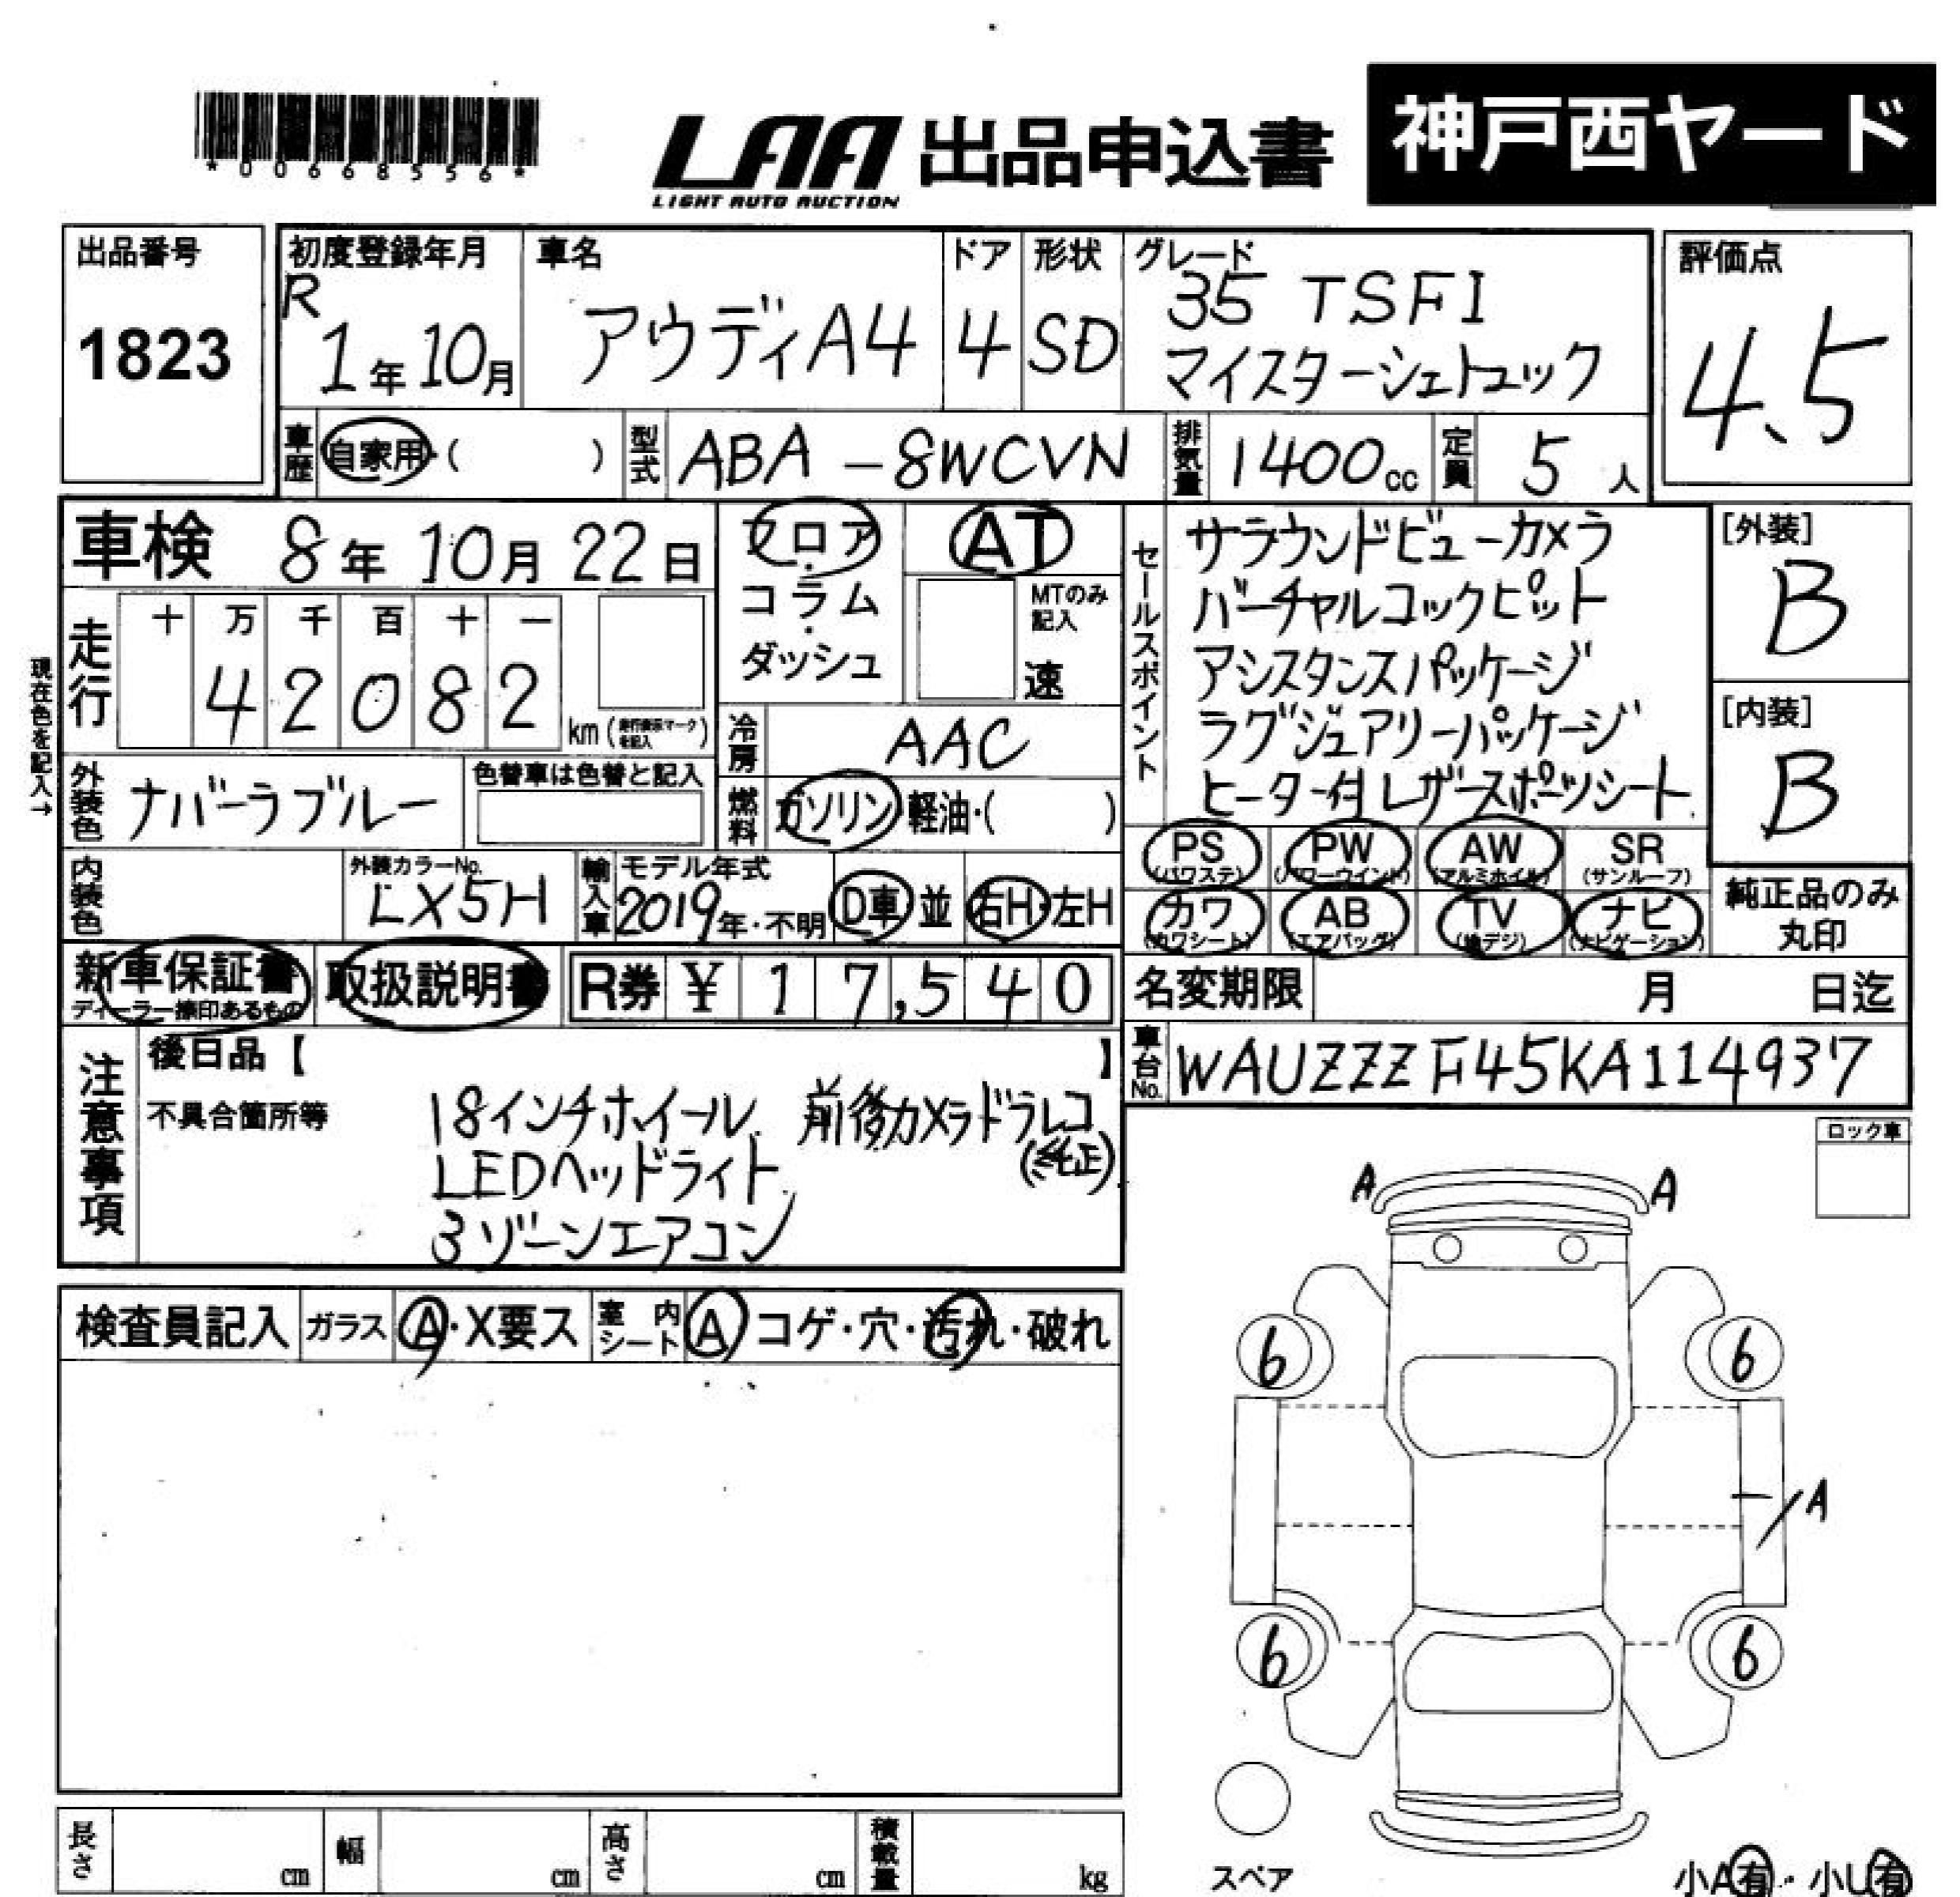 *00668556*
LAA 出品申込書
LIGHT AUTO AUCTION
神戸西ヤード
出品番号
1823
初度登録年月
R
1年10月
車名
アウディA4
ドア
4
形状
SD
グレード
35 TSFI
マイスターシュトュック
評価点
4.5
車歴
自家用・( )
型式
ABA-8WCVN
排気量
1400cc
定員
5人
車検 8年10月22日
フロア・コラム・ダッシュ
AT
MTのみ記入
速
現在色を記入→
走行
十 万 千 百 十 一
4 2 0 8 2
km
冷房
AAC
燃料
ガソリン・軽油・( )
外装色
ナバーラブルー
色替車は色替と記入
内装色
外装カラーNo.
LX5H
輸入車
モデル年式
2019年・不明
D車・並
右H・左H
セールスポイント
サラウンドビューカメラ
バーチャルコックピット
アシスタンスパッケージ
ラグジュアリーパッケージ
ヒーター付レザースポーツシート
[外装]
B
[内装]
B
PS (パワステ)
PW (パワーウインド)
AW (アルミホイル)
SR (サンルーフ)
カワ (カワシート)
AB (エアバッグ)
TV (地デジ)
ナビ (ナビゲーション)
純正品のみ
丸印
新車保証書
ディーラー捺印あるもの
取扱説明書
R券 ¥ 17,540
名変期限 月 日迄
車台No.
WAUZZZF45KA114937
注意事項
後日品【 】
不具合箇所等
18インチホイール 前後カメラドラレコ
(純正)
LEDヘッドライト
3ゾーンエアコン
ロック車
検査員記入
ガラス
A・X要ス
室内シート
A コゲ・穴・汚れ・破れ
A
A
6
6
A
6
6
スペア
小A有・小U有
長さ cm
幅 cm
高さ cm
積載量 kg